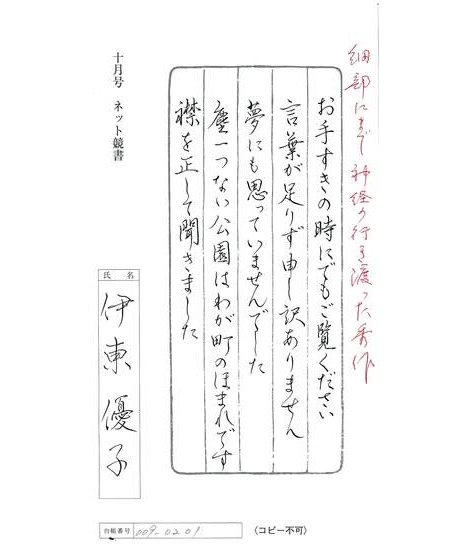 細部にまで神経の行き渡った秀作
お手すきの時にでもご覧ください
言葉が足りず申し訳ありません
夢にも思っていませんでした
塵一つない公園はわが町のほまれです
襟を正して聞きました
十月号 ネット競書
氏名
伊東優子
台帳番号 009-0201
〈コピー不可〉